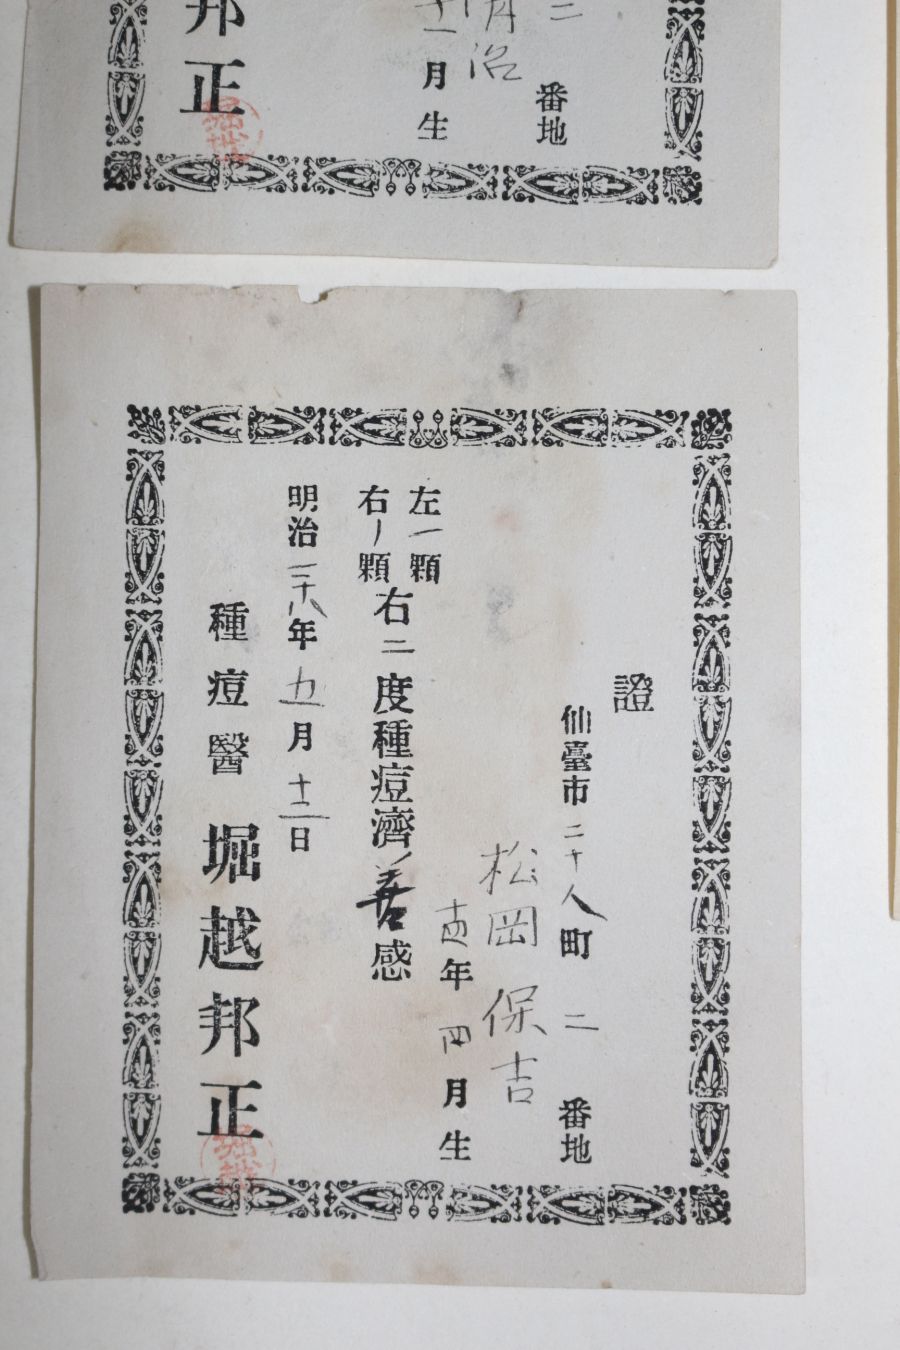 番地
十一月生
邦正
堀越
證
仙臺市二十人町 二 番地
松岡 保吉
年四月生
左一顆
右一顆
右二度種痘濟善感
明治二十八年五月十二日
種痘醫 堀越邦正
堀越